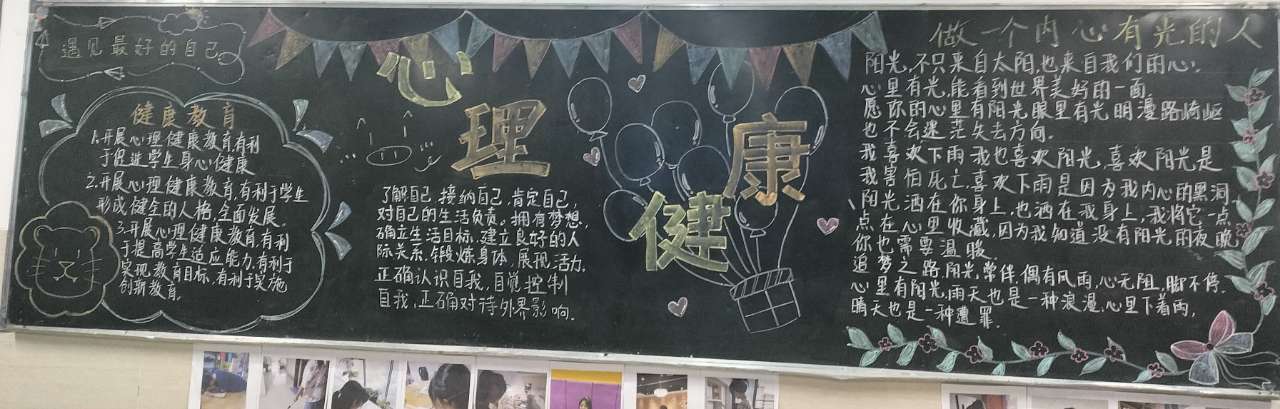 遇见最好的自己
健康教育
1.开展心理健康教育有利
于促进学生身心健康
2.开展心理健康教育,有利于学生
形成健全的人格,全面发展.
3.开展心理健康教育,有利
于提高学生适应能力,有利于
实现教育目标,有利于实施
创新教育.
心理健康
了解自己,接纳自己,肯定自己,
对自己的生活负责,拥有梦想,
确立生活目标,建立良好的人
际关系,锻炼身体,展现活力,
正确认识自我,自觉控制
自我,正确对待外界影响.
做一个内心有光的人
阳光,不只来自太阳,也来自我们的心.
心里有光,能看到世界美好的一面,
愿你的心里有阳光眼里有光明,漫路崎岖
也不会迷茫失去方向.
我喜欢下雨我也喜欢阳光,喜欢阳光是
我害怕死亡,喜欢下雨是因为我内心的黑洞,
阳光洒在你身上,也洒在我身上,我将它一点
点在心里收藏,因为我知道没有阳光的夜晚
你也需要温暖.
追梦之路阳光常伴,偶有风雨,心无阻,脚不停.
心里有阳光,雨天也是一种浪漫,心里下着雨,
晴天也是一种遭罪.